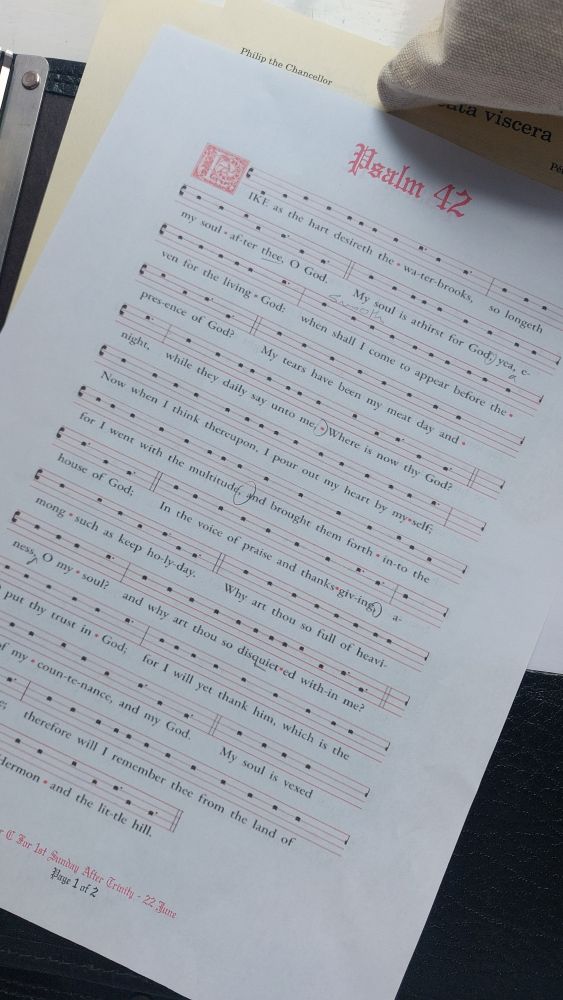 Philip the Chancellor
ata viscera
Psalm 42
LIKE as the hart desireth the • wa-ter-brooks, so longeth
my soul • af-ter thee, O God. My soul is athirst for God, yea, e-
smooth
ven for the living • God: when shall I come to appear before the •
pres-ence of God? My tears have been my meat day and •
night, while they daily say unto me, • Where is now thy God?
Now when I think thereupon, I pour out my heart by my•self;
for I went with the multitude, and brought them forth • in-to the
house of God; In the voice of praise and thanks•giv-ing, a-
mong • such as keep ho-ly-day. Why art thou so full of heavi-
ness, O my • soul? and why art thou so disquiet•ed with-in me?
put thy trust in • God: for I will yet thank him, which is the
of my • coun-te-nance, and my God. My soul is vexed
therefore will I remember thee from the land of
Hermon • and the lit-tle hill.
C For 1st Sunday After Trinity - 22 June
Page 1 of 2